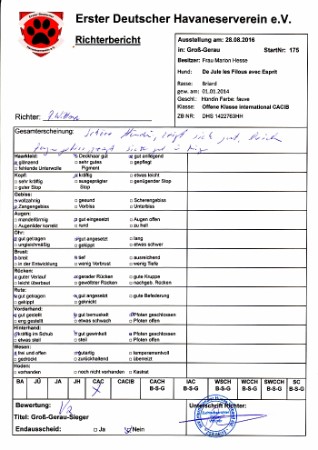 Erster Deutscher Havaneserverein e.V.
Richterbericht
Ausstellung am: 28.08.2016
in: Groß-Gerau StartNr: 175
Besitzer: Frau Marion Hesse
Hund: De Jule les Filous avec Esprit
Rasse: Briard
gew. am: 01.01.2014
Geschl: Hündin Farbe: fauve
Klasse: Offene Klasse International CACIB
ZB NR: DHS 1422763HH
Richter:
Gesamterscheinung:
Haarkleid: Deckhaar gut gut anliegend
glänzend sehr gutes gepflegt
fehlende Unterwolle Pigment
Kopf: kräftig etwas leicht
sehr kräftig ausgeprägter genügender Stop
guter Stop Stop
Gebiss:
vollzahnig gesund Scherengebiss
Zangengebiss Vorbiss Unterbiss
Augen:
mandelförmig gut eingesetzt Augen offen
Augenlider korrekt rund zu hell
Ohr:
gut getragen gut angesetzt lang
ungleichmäßig gekippt etwas schwer
Brust:
breit tief ausreichend
in der Entwicklung wenig Vorbrust wenig Tiefe
Rücken:
guter Verlauf gerader Rücken gute Kruppe
leicht überbaut gewölbter Rücken nachgeb. Rücken
Rute:
gut getragen gut angesetzt gute Befederung
gekippt geknickt
Vorderhand:
gut gestellt gut bemuskelt Pfoten geschlossen
eng gestellt etwas schwach Pfoten offen
Hinterhand:
kräftig im Schub gut gewinkelt Pfoten geschlossen
etwas steil steil Pfoten offen
Wesen:
frei und offen gutartig temperamentvoll
gedrückt zurückhaltend überreizt
Hoden:
vorhanden noch nicht vorhanden Kastrat
BA JÜ JA JH CAC CACIB CACH IAC WSCH WCCH SWCCH SC
B-S-G B-S-G B-S-G B-S-G B-S-G B-S-G
Bewertung: V3 Unterschrift Richter:
Titel: Groß-Gerau-Sieger
Endausscheid: Ja Nein